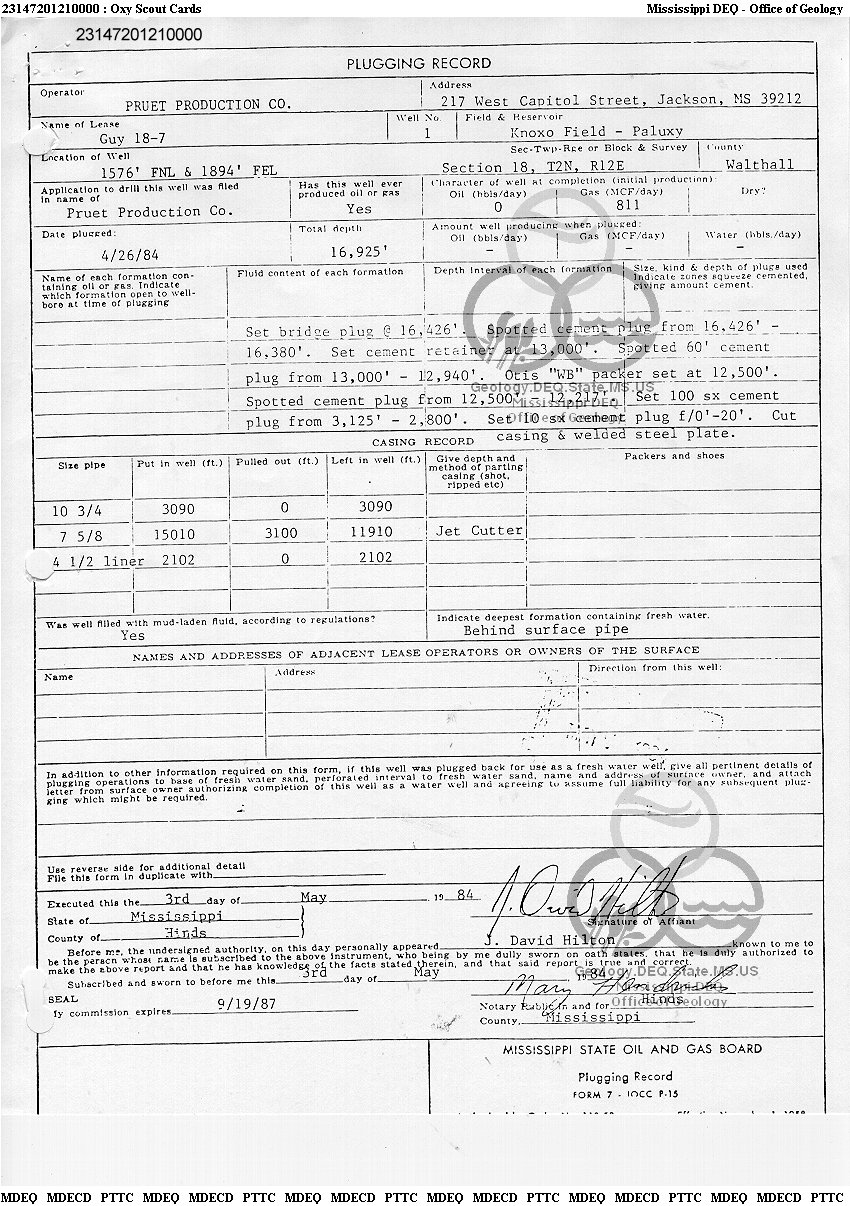 23147201210000 : Oxy Scout Cards Mississippi DEQ - Office of Geology
23147201210000
PLUGGING RECORD
Operator Address
PRUET PRODUCTION CO. 217 West Capitol Street, Jackson, MS 39212
Name of Lease Well No. Field & Reservoir
Guy 18-7 1 Knoxo Field - Paluxy
Location of Well Sec-Twp-Rge or Block & Survey County
1576' FNL & 1894' FEL Section 18, T2N, R12E Walthall
Application to drill this well was filed in name of Has this well ever produced oil or gas Character of well at completion (initial production):
Oil (bbls/day) Gas (MCF/day) Dry?
Pruet Production Co. Yes 0 811
Date plugged: Total depth Amount well producing when plugged:
Oil (bbls/day) Gas (MCF/day) Water (bbls./day)
4/26/84 16,925' - - -
Name of each formation con-
taining oil or gas. Indicate
which formation open to well-
bore at time of plugging
Fluid content of each formation
Depth interval of each formation
Size, kind & depth of plugs used
Indicate zones squeeze cemented,
giving amount cement.
Set bridge plug @ 16,426'. Spotted cement plug from 16,426' -
16,380'. Set cement retainer at 13,000'. Spotted 60' cement
plug from 13,000' - 12,940'. Otis "WB" packer set at 12,500'.
Geology.DEQ.State.MS.US
Spotted cement plug from 12,500' - 12,217'. Set 100 sx cement
Mississippi DEQ
plug from 3,125' - 2,800'. Set 10 sx cement plug f/0'-20'. Cut
Office of Geology
casing & welded steel plate.
CASING RECORD
Size pipe Put in well (ft.) Pulled out (ft.) Left in well (ft.) Give depth and method of parting casing (shot, ripped etc) Packers and shoes
10 3/4 3090 0 3090
7 5/8 15010 3100 11910 Jet Cutter
4 1/2 liner 2102 0 2102
Was well filled with mud-laden fluid, according to regulations? Indicate deepest formation containing fresh water.
Yes Behind surface pipe
NAMES AND ADDRESSES OF ADJACENT LEASE OPERATORS OR OWNERS OF THE SURFACE
Name Address Direction from this well:
In addition to other information required on this form, if this well was plugged back for use as a fresh water well, give all pertinent details of
plugging operations to base of fresh water sand, perforated interval to fresh water sand, name and address of surface owner, and attach
letter from surface owner authorizing completion of this well as a water well and agreeing to assume full liability for any subsequent plug-
ging which might be required.
Use reverse side for additional detail
File this form in duplicate with
Executed this the 3rd day of May, 19 84
State of Mississippi
Signature of Affiant
County of Hinds
Before me, the undersigned authority, on this day personally appeared J. David Hilton known to me to
be the person whose name is subscribed to the above instrument, who being by me dully sworn on oath states, that he is duly authorized to
make the above report and that he has knowledge of the facts stated therein, and that said report is true and correct.
Geology.DEQ.State.MS.US
Subscribed and sworn to before me this 3rd day of May 1984
SEAL
Notary Public in and for Hinds
Office of Geology
My commission expires 9/19/87
County, Mississippi
MISSISSIPPI STATE OIL AND GAS BOARD
Plugging Record
FORM 7 - IOCC P-15
MDEQ MDECD PTTC MDEQ MDECD PTTC MDEQ MDECD PTTC MDEQ MDECD PTTC MDEQ MDECD PTTC MDEQ MDECD PTTC